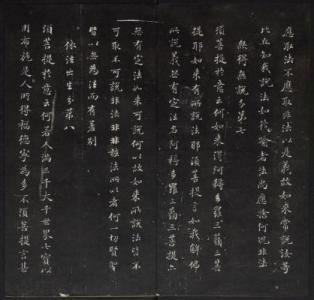 應取法不應取非法以是義故如來常說汝等
比丘知我說法如筏喻者法尚應捨何況非法
無得無說分第七
須菩提於意云何如來得阿耨多羅三藐三菩
提耶如來有所說法耶須菩提言如我解佛
所說義無有定法名阿耨多羅三藐三菩提亦
無有定法如來可說何以故如來所說法皆不
可取不可說非法非非法所以者何一切賢聖
皆以無為法而有差別
依法出生分第八
須菩提於意云何若人滿三千大千世界七寶以
用布施是人所得福德寧為多不須菩提言甚